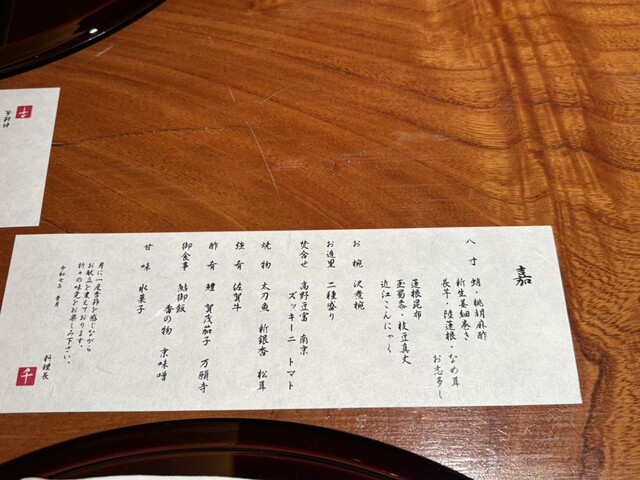 嘉
八寸 蛸・桃胡麻酢
新生姜細巻き
長芋・陸蓮根・なめ茸
お志多し
蓮根昆布
玉蜀黍・枝豆真丈
近江こんにゃく
お椀 沢煮椀
お造里 二種盛り
焚合せ 高野豆富 南京
ズッキーニ トマト
焼物 太刀魚 新銀杏 松茸
強肴 佐賀牛
酢肴 鱧 賀茂茄子 万願寺
御食事 鮎御飯
香の物 京味噌
甘味 水菓子
月に一度季節を感じながら
お献立を変えております。
折々の味覚をお楽しみ下さい。
令和七年 葉月
料理長
千